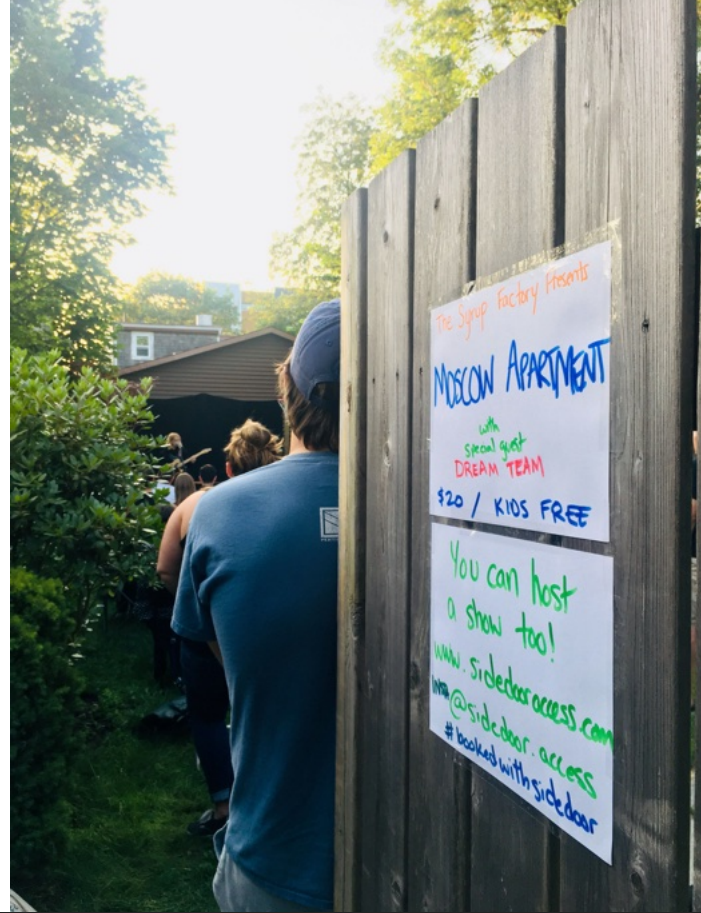 The Syrup Factory Presents
MOSCOW APARTMENT
with
special guest
DREAM TEAM
$20 / KIDS FREE
You can host
a show too!
www.sidedooraccess.com
INSTA @sidedoor.access
#bookedwithsidedoor